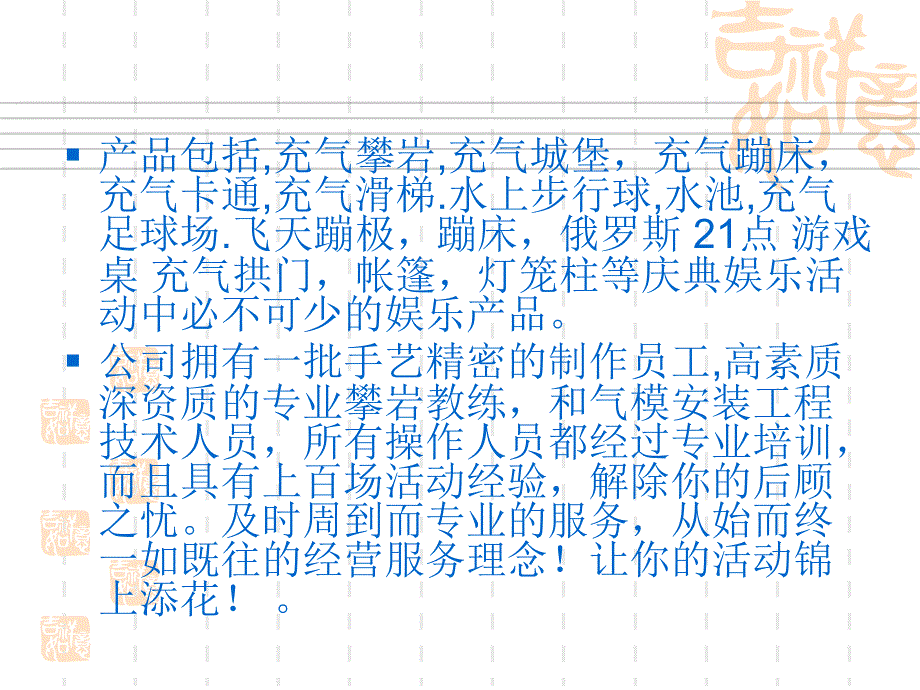 吉祥
如意
产品包括,充气攀岩,充气城堡，充气蹦床，
充气卡通,充气滑梯.水上步行球,水池,充气
足球场.飞天蹦极，蹦床，俄罗斯 21点 游戏
桌 充气拱门，帐篷，灯笼柱等庆典娱乐活
动中必不可少的娱乐产品。
公司拥有一批手艺精密的制作员工,高素质
深资质的专业攀岩教练，和气模安装工程
技术人员，所有操作人员都经过专业培训，
而且具有上百场活动经验，解除你的后顾
之忧。及时周到而专业的服务，从始而终
一如既往的经营服务理念！让你的活动锦
上添花！ 。
吉祥
如意
吉祥
如意
吉祥
如意
吉祥
如意
吉祥
如意
吉祥
如意